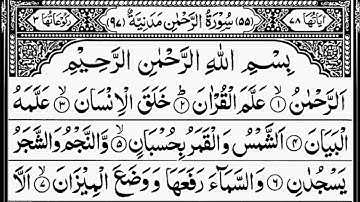 اٰيَاتُهَا ٧٨ (٥٥) سُوْرَةُ الرَّحْمٰنِ مَدَنِيَّةٌ (٩٧) رُكُوْعَاتُهَا ٣
بِسْمِ اللهِ الرَّحْمٰنِ الرَّحِيْمِ
اَلرَّحْمٰنُ ۙ﴿١﴾ عَلَّمَ الْقُرْاٰنَ ؕ﴿٢﴾ خَلَقَ الْاِنْسَانَ ۙ﴿٣﴾ عَلَّمَهُ
الْبَيَانَ ﴿٤﴾ اَلشَّمْسُ وَالْقَمَرُ بِحُسْبَانٍ ۪﴿٥﴾ وَّالنَّجْمُ وَالشَّجَرُ
يَسْجُدٰنِ ﴿٦﴾ وَالسَّمَآءَ رَفَعَهَا وَوَضَعَ الْمِيْزَانَ ۙ﴿٧﴾ اَلَّا